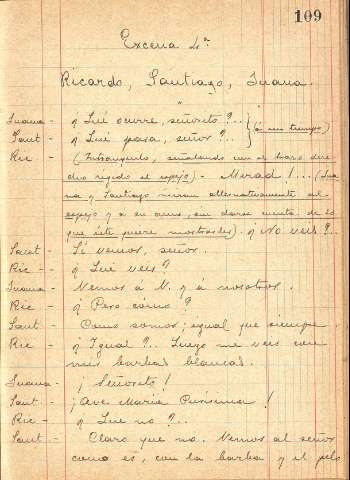 109
Excena 4ª
Ricardo, Santiago, Juana.
Juana - ¿Qué ocurre, señorito?..
Sant - ¿Qué pasa, señor?.. (á un tiempo)
Ric - (Tribunquelo, señalando con el brazo dere-
cho rígido al espejo) - Mirad!... (Jua
na y Santiago miran alternativamente al
espejo y a su amo, sin darse cuenta de lo
que éste quiere mostrarles) ¿No veis?..
Sant - Sí vemos, señor.
Ric - ¿Qué veis?
Juana - Vemos á V. y á nosotros.
Ric - ¿Pero cómo?
Sant - Como somos; igual que siempre.
Ric - ¿Igual?.. Luego me veis con
mis barbas blancas.
Juana - ¡Señorito!
Sant - ¡Ave María Purísima!
Ric - ¿Qué no?..
Sant - Claro que no. Vemos al señor
como es, con la barba y el pelo